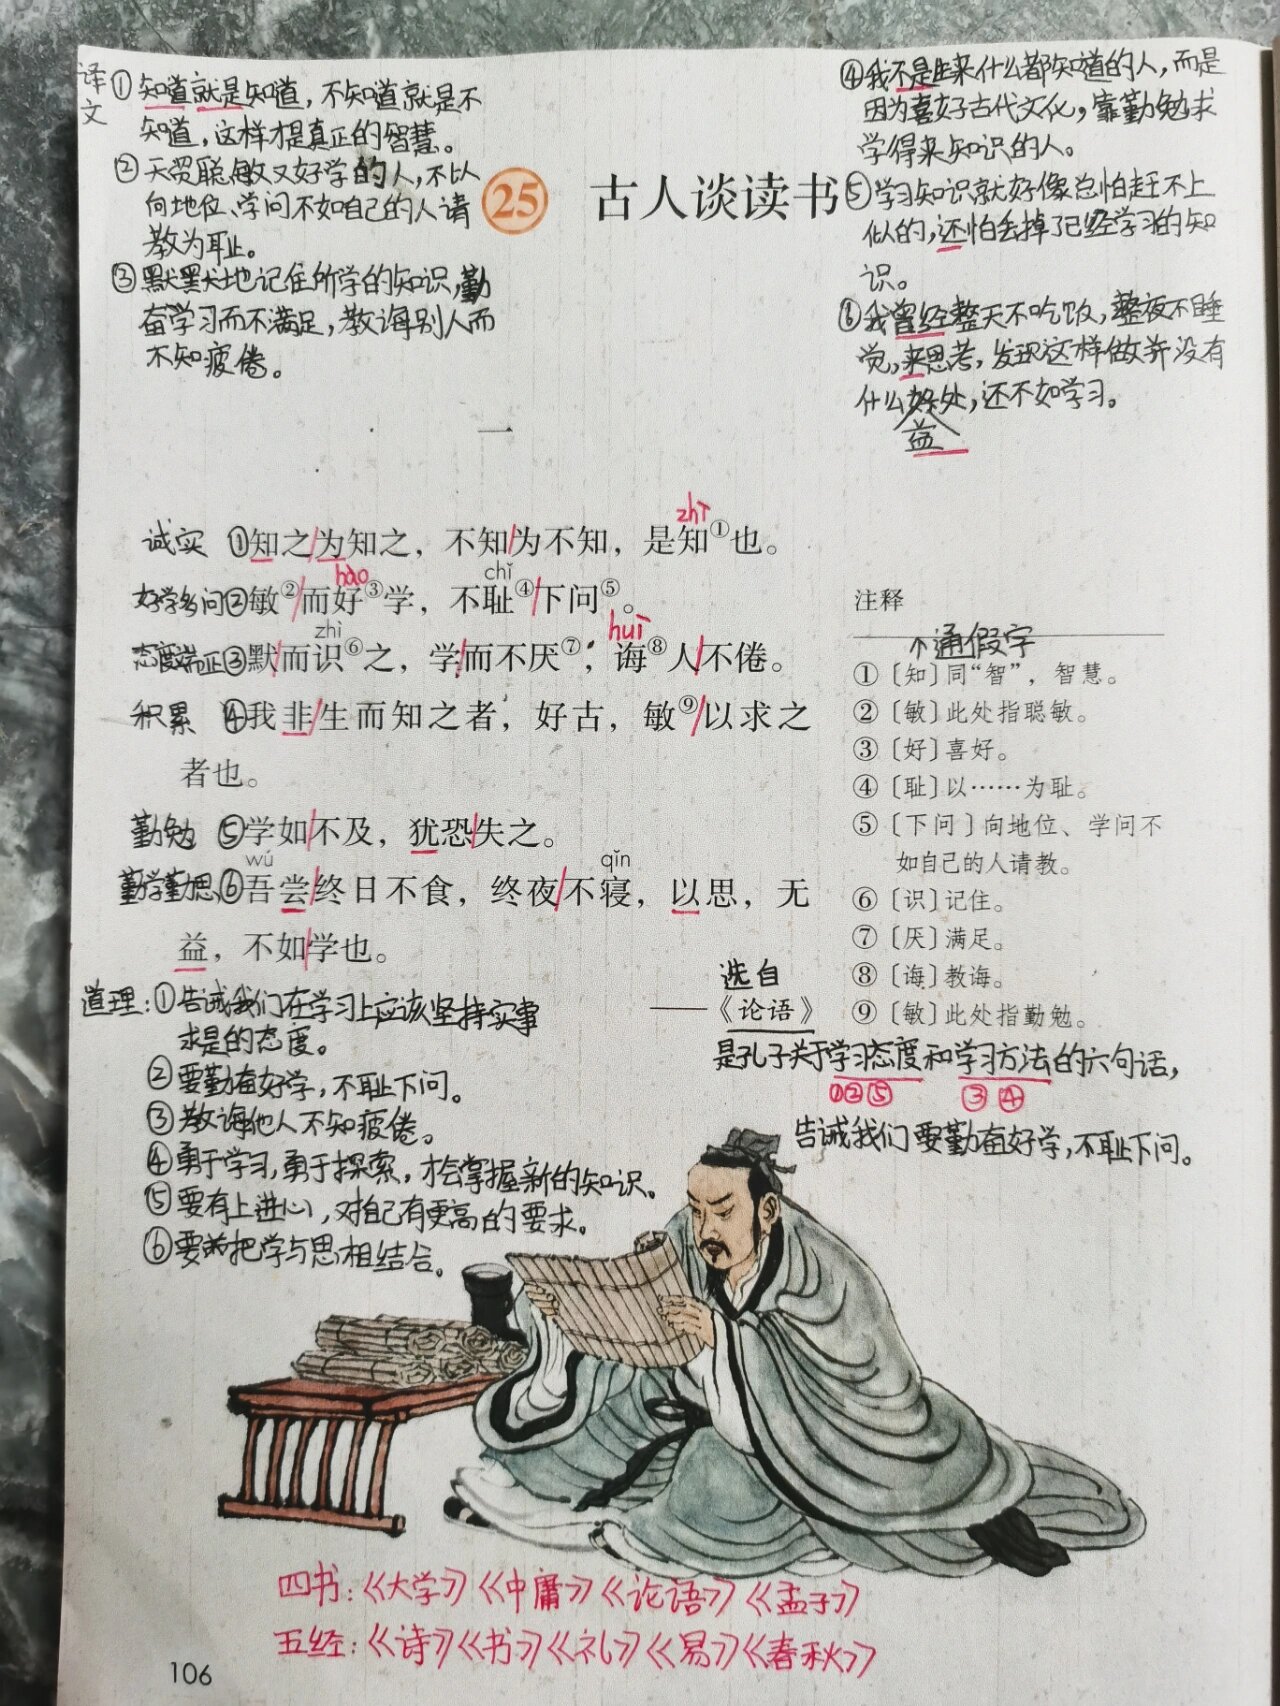 译文
①知道就是知道，不知道就是不
知道，这样才是真正的智慧。
②天资聪敏又好学的人，不以
向地位、学问不如自己的人请
教为耻。
③默默地记住所学的知识，勤
奋学习而不满足，教诲别人而
不知疲倦。
④我不是生来什么都知道的人，而是
因为喜好古代文化，靠勤勉求
学得来知识的人。
⑤学习知识就好像总怕赶不上
似的，还怕丢掉了已经学习的知
识。
⑥我曾经整天不吃饭，整夜不睡
觉，来思考，发现这样做并没有
什么好处，还不如学习。
益
25 古人谈读书
一
zhī
诚实 ①知之/为知之，不知/为不知，是知①也。
hào chǐ
好学多问②敏②/而好③学，不耻④/下问⑤。
zhì huì
态度端正③默/而识⑥之，学/而不厌⑦，诲⑧人/不倦。
积累 ④我非/生而知之者，好古，敏⑨/以求之
者也。
勤勉 ⑤学如/不及，犹恐/失之。
wú qǐn
勤学勤思⑥吾尝/终日不食，终夜/不寝，以思，无
益，不如/学也。
选自
——《论语》
注释
通假字
①〔知〕同“智”，智慧。
②〔敏〕此处指聪敏。
③〔好〕喜好。
④〔耻〕以……为耻。
⑤〔下问〕向地位、学问不
如自己的人请教。
⑥〔识〕记住。
⑦〔厌〕满足。
⑧〔诲〕教诲。
⑨〔敏〕此处指勤勉。
是孔子关于学习态度和学习方法的六句话，
①②⑤ ③④
告诫我们要勤奋好学，不耻下问。
道理：①告诫我们在学习上应该坚持实事
求是的态度。
②要勤奋好学，不耻下问。
③教诲他人不知疲倦。
④勇于学习，勇于探索，才会掌握新的知识。
⑤要有上进心，对自己有更高的要求。
⑥要把学与思相结合。
四书：《大学》《中庸》《论语》《孟子》
五经：《诗》《书》《礼》《易》《春秋》
106